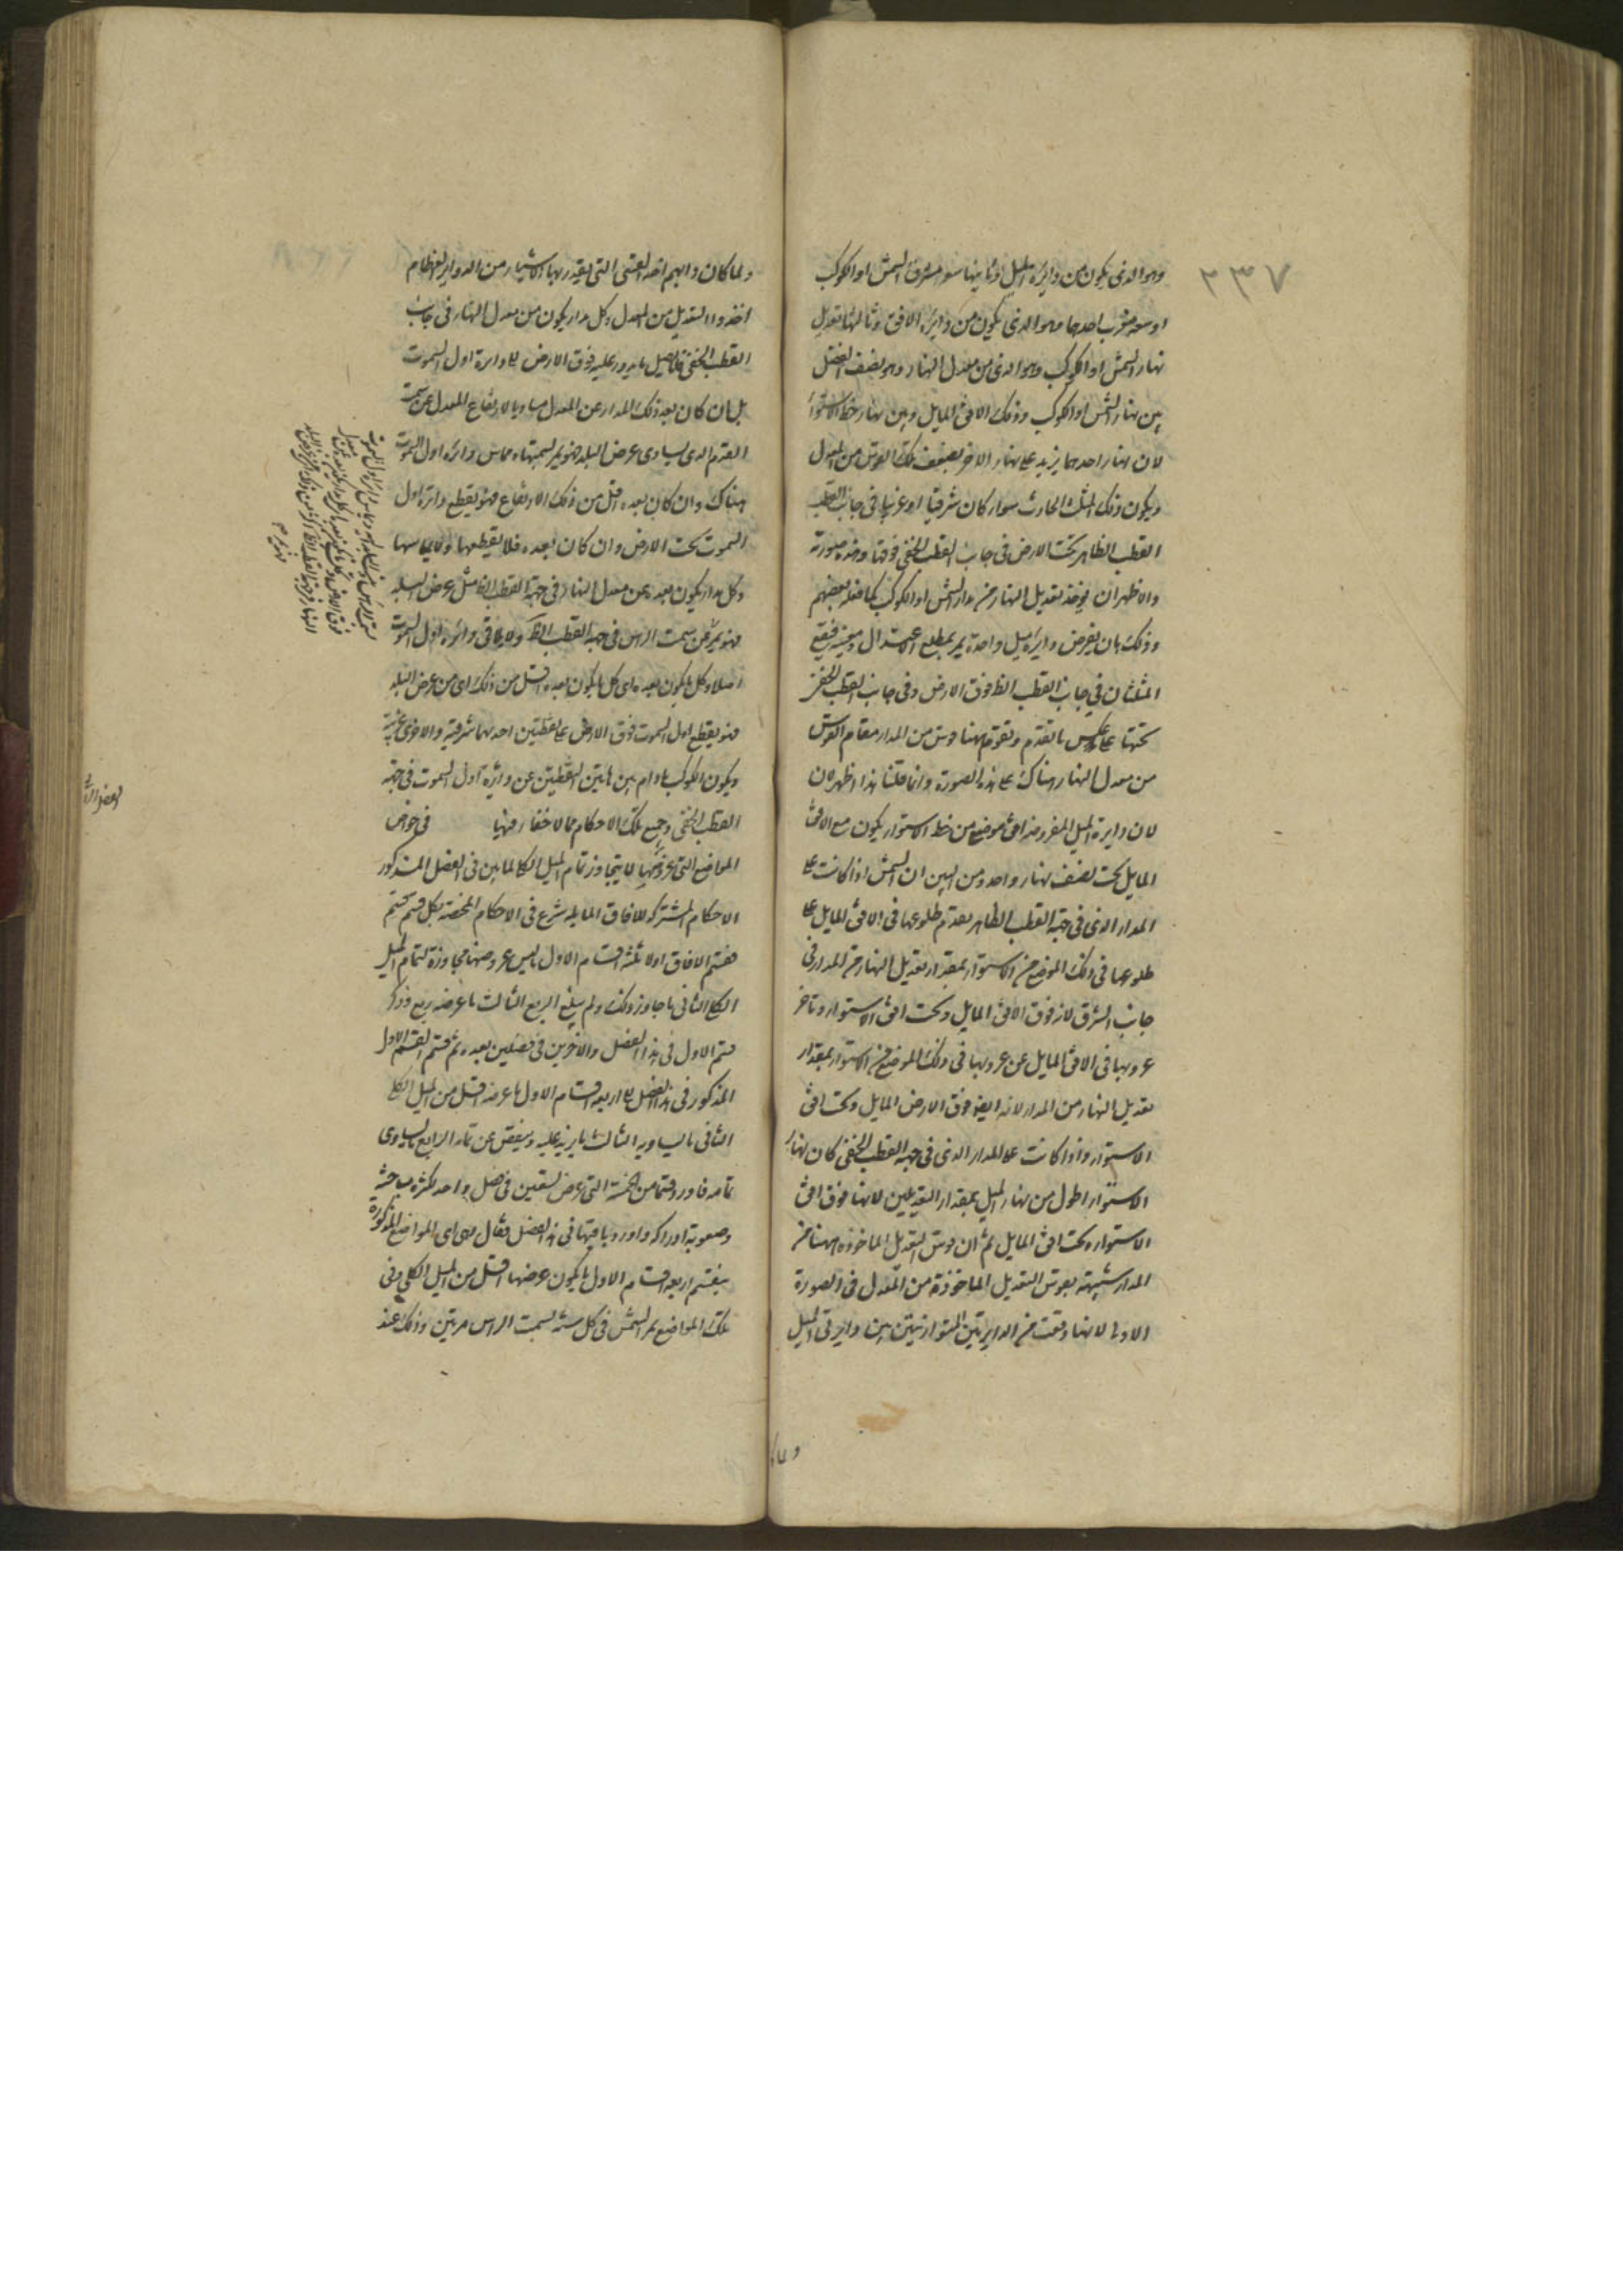 ٢٣٧
وهو الذى يكون من دايرة الميل وثانيها سعة مشرق الشمس او الكوكب
او سعة مغرب احدهما وهو الذى يكون من دايرة الافق وثالثها تعديل
نهار الشمس او الكوكب وهو الذى من معدل النهار وهو نصف الفضل
بين نهار الشمس او الكوكب وذلك الافق المايل وبين نهار خط الاستواء
لان نهار احدهما يزيد على نهار الاخر بضعف تلك القوس من المعدل
ويكون ذلك المثلث الحادث سواء كان شرقيا او غربيا فى جانب القطب
القطب الظاهر تحت الارض فى جانب القطب الخفى فوقها وهذه صورته
والاظهر ان يوخذ تعديل النهار من مدار الشمس او الكوكب كما فعله بعضهم
وذلك بان يفرض دايرة ميل واحدة يمر بمطلع الاعتدال ومغيبه فيقع
المثلثان فى جانب القطب الظ فوق الارض وفى جانب القطب الخفى
تحتها على عكس ما تقدم وتقوم ههنا قوس من المدار مقام القوس
من معدل النهار هناك على هذه الصورة وانما قلنا هذا اظهر لان
لان دايرة الميل المفروضة افق موضع من خط الاستواء يكون مع الافق
المايل تحت نصف نهار واحد ومن البين ان الشمس اذا كانت على
المدار الذى فى جهة القطب الظاهر يعدم طلوعها فى الافق المايل على
طلوعها فى ذلك الموضع من الاستواء بمقدار تعديل النهار من المدار فى
جانب الشرق لانه فوق الافق المايل وتحت افق الاستواء وتاخر
غروبها فى الافق المايل عن غروبها فى ذلك الموضع من الاستواء بمقدار
تعديل النهار من المدار لانه ايضا فوق الارض المايل وتحت افق
الاستواء واذا كانت على المدار الذى فى جهة القطب الخفى كان نهار
الاستواء اطول من نهار الميل بمقدار التعديلين لانها فوق افق
الاستواء وتحت افق المايل ثم ان قوس التعديل الماخوذة ههنا من
المدار شبيهة بقوس التعديل الماخوذة من المعدل فى الصورة
الاولى لانها وقعت من الدايرتين المتوازيتين بين دايرتى الميل
ولما كان
ولما كان دابهم اخذ القسى التى يقدر بها الاشياء من الدواير العظام
اخذوا التعديل من المعدل وكل مدار يكون من معدل النهار فى جانب
القطب الخفى فلا يصل ما يدور عليه فوق الارض الى دايرة اول السموت
بل ان كان بعد ذلك المدار عن المعدل مساويا لارتفاع المعدل عن سمت
القدم الذى يساوى عرض البلد فهو يمر بسمتها ومماس دائرة اول السموت
هناك وان كان بعده اقل من ذلك الارتفاع فهو يقطع دائرة اول
السموت تحت الارض وان كان بعده فلا يقطعها ولا يماسها
وكل مدار يكون بعده عن معدل النهار فى جهة القطب الظ مثل عرض البلد
فهو يمر عن سمت الراس فى جهة القطب الظ ولا يلاقى دائرة اول السموت
اصلا وكل ما يكون بعده اى كل ما يكون بعده اقل من ذلك اى من عرض البلد
فهو يقطع اول السموت فوق الارض على نقطتين احديهما شرقية والاخرى غربية
ويكون الكوكب ما دام بين هاتين النقطتين عن دائرة اول السموت فى جهة
القطب الخفى وجميع تلك الاحكام مما لا خفاء فيها فى خواص
المواضع التى عروضها لا يتجاوز تمام الميل الكلى لما بين فى الفصل المذكور
الاحكام المشتركة للافاق المايلة شرع فى الاحكام المختصة بكل قسم قسم
فقسم الافاق اولا ثلثة اقسام الاول ما ليس عروضها مجاوزة لتمام الميل
الكلى الثانى ما جاوز ذلك ولم يبلغ الربع الثالث ما عرضه ربع وذكر
قسم الاول فى هذا الفصل والاخرين فى فصلين بعده ثم قسم القسم الاول
المذكور فى هذا الفصل الى اربعة اقسام الاول ما عرضه اقل من الميل الكلى
الثانى ما يساويه الثالث ما يزيد عليه وينقص عن تمامه الرابع ما يساوى
تمامه فاورد قسما من الخمسة التى عرض تسعين فى فصل واحد لكثرة مباحثه
وصعوبة ادراكه واورد باقيها فى هذا الفصل فقال وهى اى المواضع المذكورة
ينقسم اربعة اقسام الاول ما يكون عرضها اقل من الميل الكلى وفى
تلك المواضع يمر الشمس فى كل سنة بسمت الراس مرتين وذلك عند